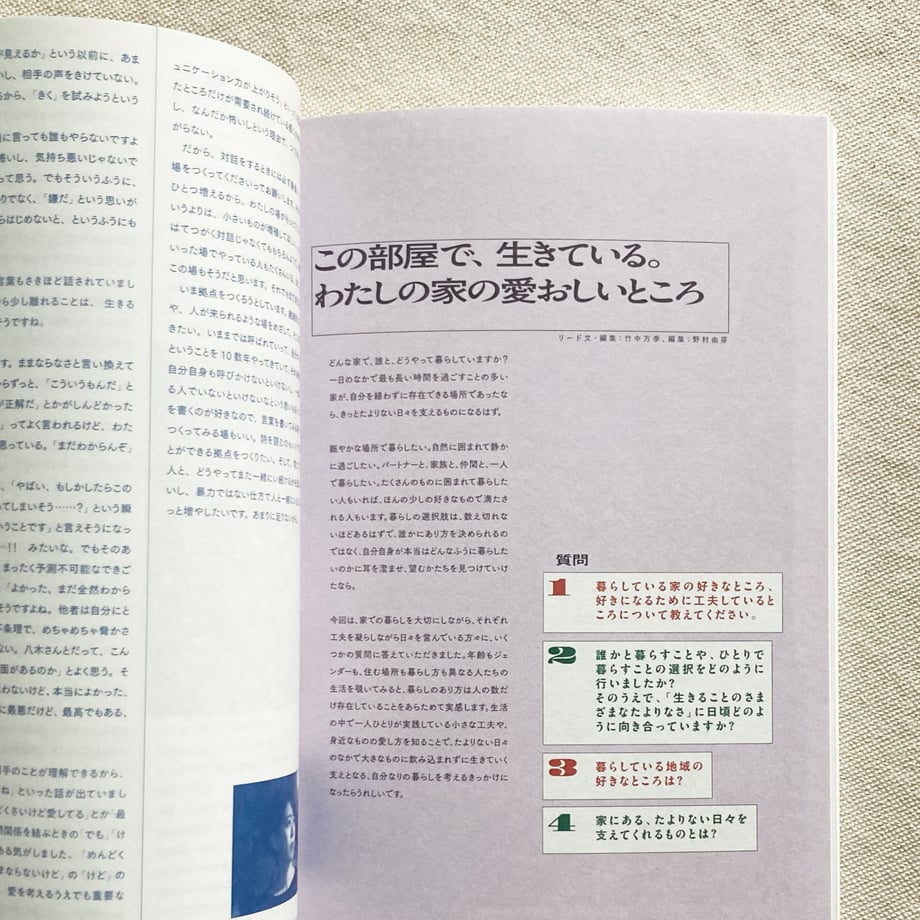 見えるか」という以前に、あま
いし、相手の声をきけていない。
るから、「きく」を試みようという
に言っても誰もやらないですよ
怖いし、気持ち悪いじゃないで
って思う。でもそういうふうに、
りでなく、「嫌だ」という思いが
らはじめないと、というふうにも
言葉もさきほど話されていまし
ら少し離れることは、生きる
そうですね。
す。ままならなさと言い換えて
らずっと、「こういうもんだ」と
が正解だ」とかがしんどかった
」ってよく言われるけど、わた
思っている。「まだわからんぞ」
、「やばい、もしかしたらこの
ってしまいそう……?」という瞬
いうことです」と言えそうになっ
…!! みたいな。でもそのあ
まったく予測不可能なできご
「よかった、まだ全然わから
そうですよね。他者は自分にと
条理で、めちゃめちゃ脅かさ
ない。八木さんとだって、こん
面があるのか」とよく思う。そ
わないけど、本当によかった、
に最悪だけど、最高でもある、
相手のことが理解できるから、
ね」といった話が出ていまし
どくさいけど愛してる」とか「最
関係を結ぶときの「でも」「け
ある気がしました。「めんどく
まならないけど」の「けど」の
愛を考えるうえでも重要な
ュニケーション力が上がりそう」とい
たところだけが需要され続けている
し、なんだか怖いしという理由で、
がらない。
だから、対話をするときには必ず
場をつくってくださいってお願いし
ひとつ増えるから。わたしの場が
いうよりは、小さいものが増殖して
はてつがく対話じゃなくてももちろん
いった場でやっている人もたくさん
この場もそうだと思います。それで
いま拠点をつくろうとしています。
や、人が来られるような場をめざして、
きたい。いままでは呼ばれていって、
ということを10数年やってきていて、
自分自身も呼びかけないといけない
る人でいないといけないなという思い
を書くのが好きなので、言葉を書いて
つくってみる場もいい。詩を読むのも
とができる拠点をつくりたい。そして、
人と、どうやってまた一緒にい続ける
いし、暴力ではない仕方で人と一緒に
っと増やしたいです。あまりに足りない
この部屋で、生きている。
わたしの家の愛おしいところ
リード文・編集:竹中万季、編集:野村由芽
どんな家で、誰と、どうやって暮らしていますか?
一日のなかで最も長い時間を過ごすことの多い
家が、自分を繕わずに存在できる場所であったな
ら、きっとたよりない日々を支えるものになるはず。
賑やかな場所で暮らしたい。自然に囲まれて静か
に過ごしたい。パートナーと、家族と、仲間と、一人
で暮らしたい。たくさんのものに囲まれて暮らした
い人もいれば、ほんの少しの好きなもので満たさ
れる人もいます。暮らしの選択肢は、数え切れな
いほどあるはずで、誰かにあり方を決められるの
ではなく、自分自身が本当はどんなふうに暮らした
いのかに耳を澄ませ、望むかたちを見つけていけ
たなら。
今回は、家での暮らしを大切にしながら、それぞれ
工夫を凝らしながら日々を営んでいる方々に、いく
つかの質問に答えていただきました。年齢もジェ
ンダーも、住む場所も暮らし方も異なる人たちの
生活を覗いてみると、暮らしのあり方は人の数だ
け存在していることをあらためて実感します。生活
の中で一人ひとりが実践している小さな工夫や、
身近なものの愛し方を知ることで、たよりない日々
のなかで大きなものに飲み込まれずに生きていく
支えとなる、自分なりの暮らしを考えるきっかけに
なったらうれしいです。
質問
1 暮らしている家の好きなところ、
好きになるために工夫していると
ころについて教えてください。
2 誰かと暮らすことや、ひとりで
暮らすことの選択をどのように
行いましたか?
そのうえで、「生きることのさま
ざまなたよりなさ」に日頃どのよ
うに向き合っていますか?
3 暮らしている地域の
好きなところは?
4 家にある、たよりない日々を
支えてくれるものとは?